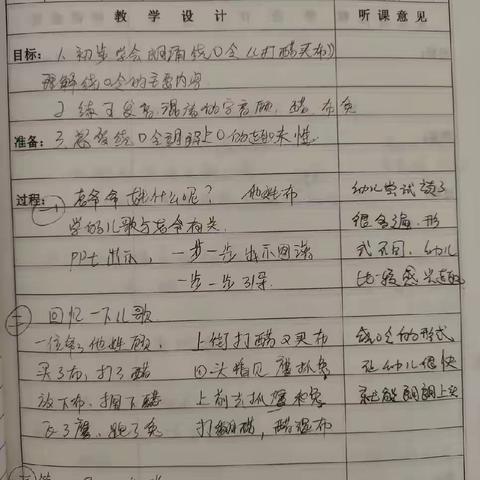 教学设计 听课意见
目标：1.初步学会朗诵绕口令《打醋买布》
理解绕口令的主要内容
2.练习发音 混淆的字音顾，醋 布 兔
准备：3.感受绕口令朗朗上口的趣味性
过程：
（一） 爷爷姓什么呢？ 他姓
学的儿歌与爷爷有关。
PPt出示，一步一步出示图谱
一步一步引导.
幼儿尝试读了
很多遍，形
式不同，幼儿
比较感兴趣
（二） 回忆一下儿歌
一位爷爷他姓顾， 上街打醋又买布
买了布，打了醋 回头看见鹰抓兔
放下布，搁下醋 上前去抓鹰和兔
飞了鹰，跑了兔 打翻醋，醋湿布
绕口令的形式
让幼儿很快
就能朗朗上口